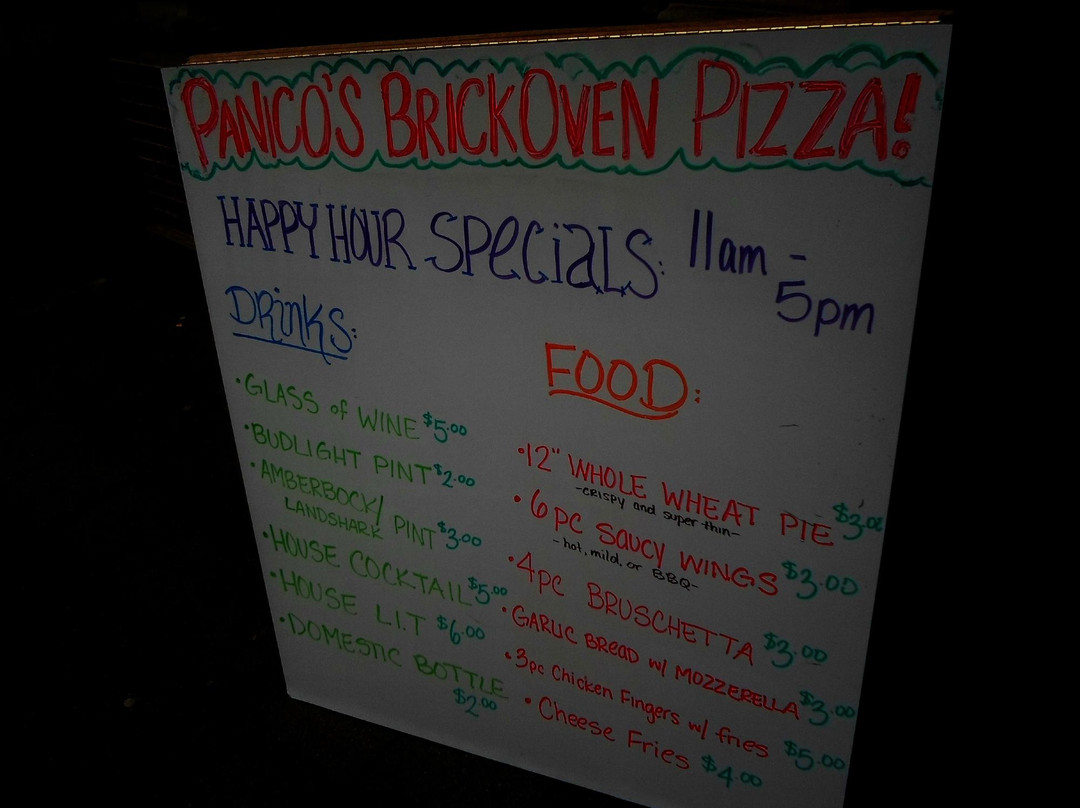 PANICO'S BRICKOVEN PIZZA!
HAPPY HOUR SPECIALS: 11am -
5pm
DRINKS:
•GLASS of WINE $5.00
•BUDLIGHT PINT $2.00
•AMBERBOCK/
LANDSHARK PINT $3.00
•HOUSE COCKTAIL $5.00
•HOUSE L.I.T $6.00
•DOMESTIC BOTTLE
$2.00
FOOD:
•12" WHOLE WHEAT PIE $3.00
-CRISPY and super thin-
•6 pc SAUCY WINGS $3.00
-hot, mild, or BBQ-
•4pc BRUSCHETTA $3.00
•GARLIC BREAD w/ MOZZERELLA $3.00
•3pc Chicken Fingers w/ fries $5.00
•Cheese Fries $4.00